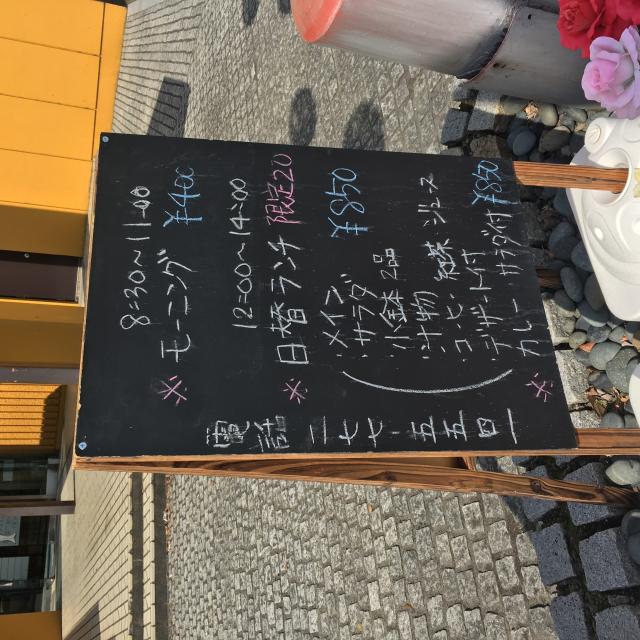 8:30〜11:00
※モーニング ¥400
12:00〜14:00
※日替ランチ 限定20
¥850
メイン
サラダ
小鉢 2品
汁物
コーヒー 紅茶 ジュース
デザート付
※カレー サラダ付 ¥850
電話 二七七-五五四一